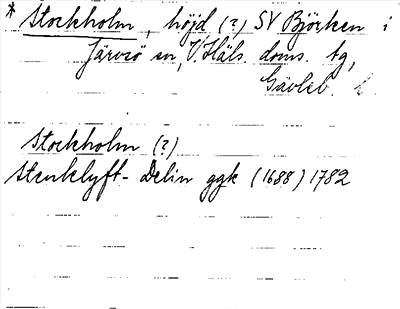 * Stockholm, höjd (?) SV Björken i
Järvsö sn, V. Häls. doms. tg,
Gävleb. L.
Stockholm (?)
Stenklyft - Delin ggk (1688) 1782